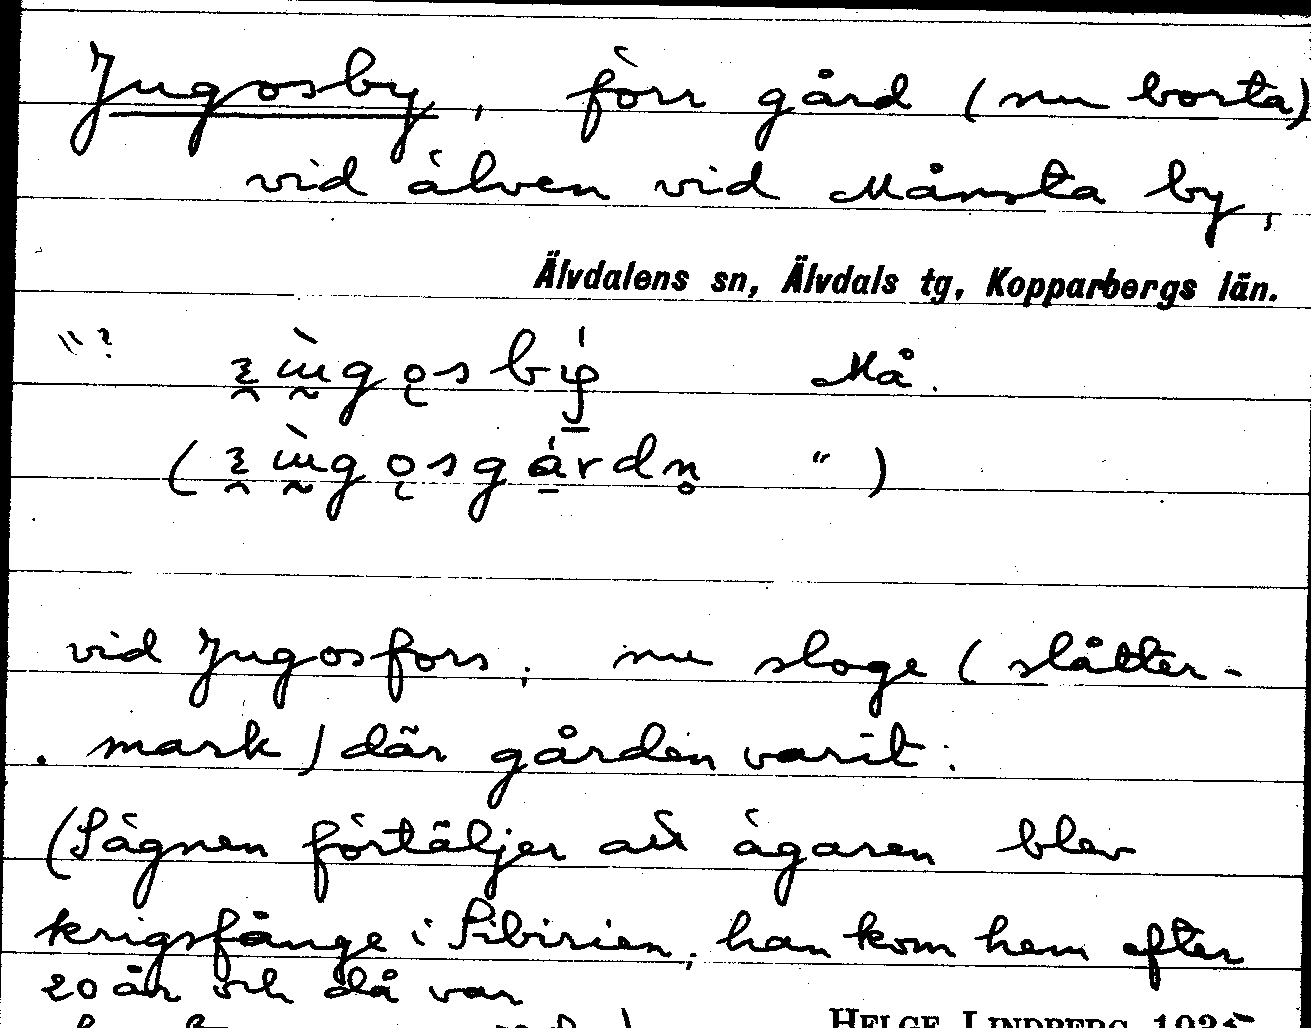 Jugosby, förr gård (nu borta)
vid älven vid Månsta by,
Älvdalens sn, Älvdals tg, Kopparbergs län.
Må.
( " )
vid Jugosfors; nu sloge (slåtter-
mark) där gården varit.
(Sägnen förtäljer att ägaren blev
krigsfånge i Sibirien, han kom hem efter
20 år och då var
HELGE LINDBERG 1935